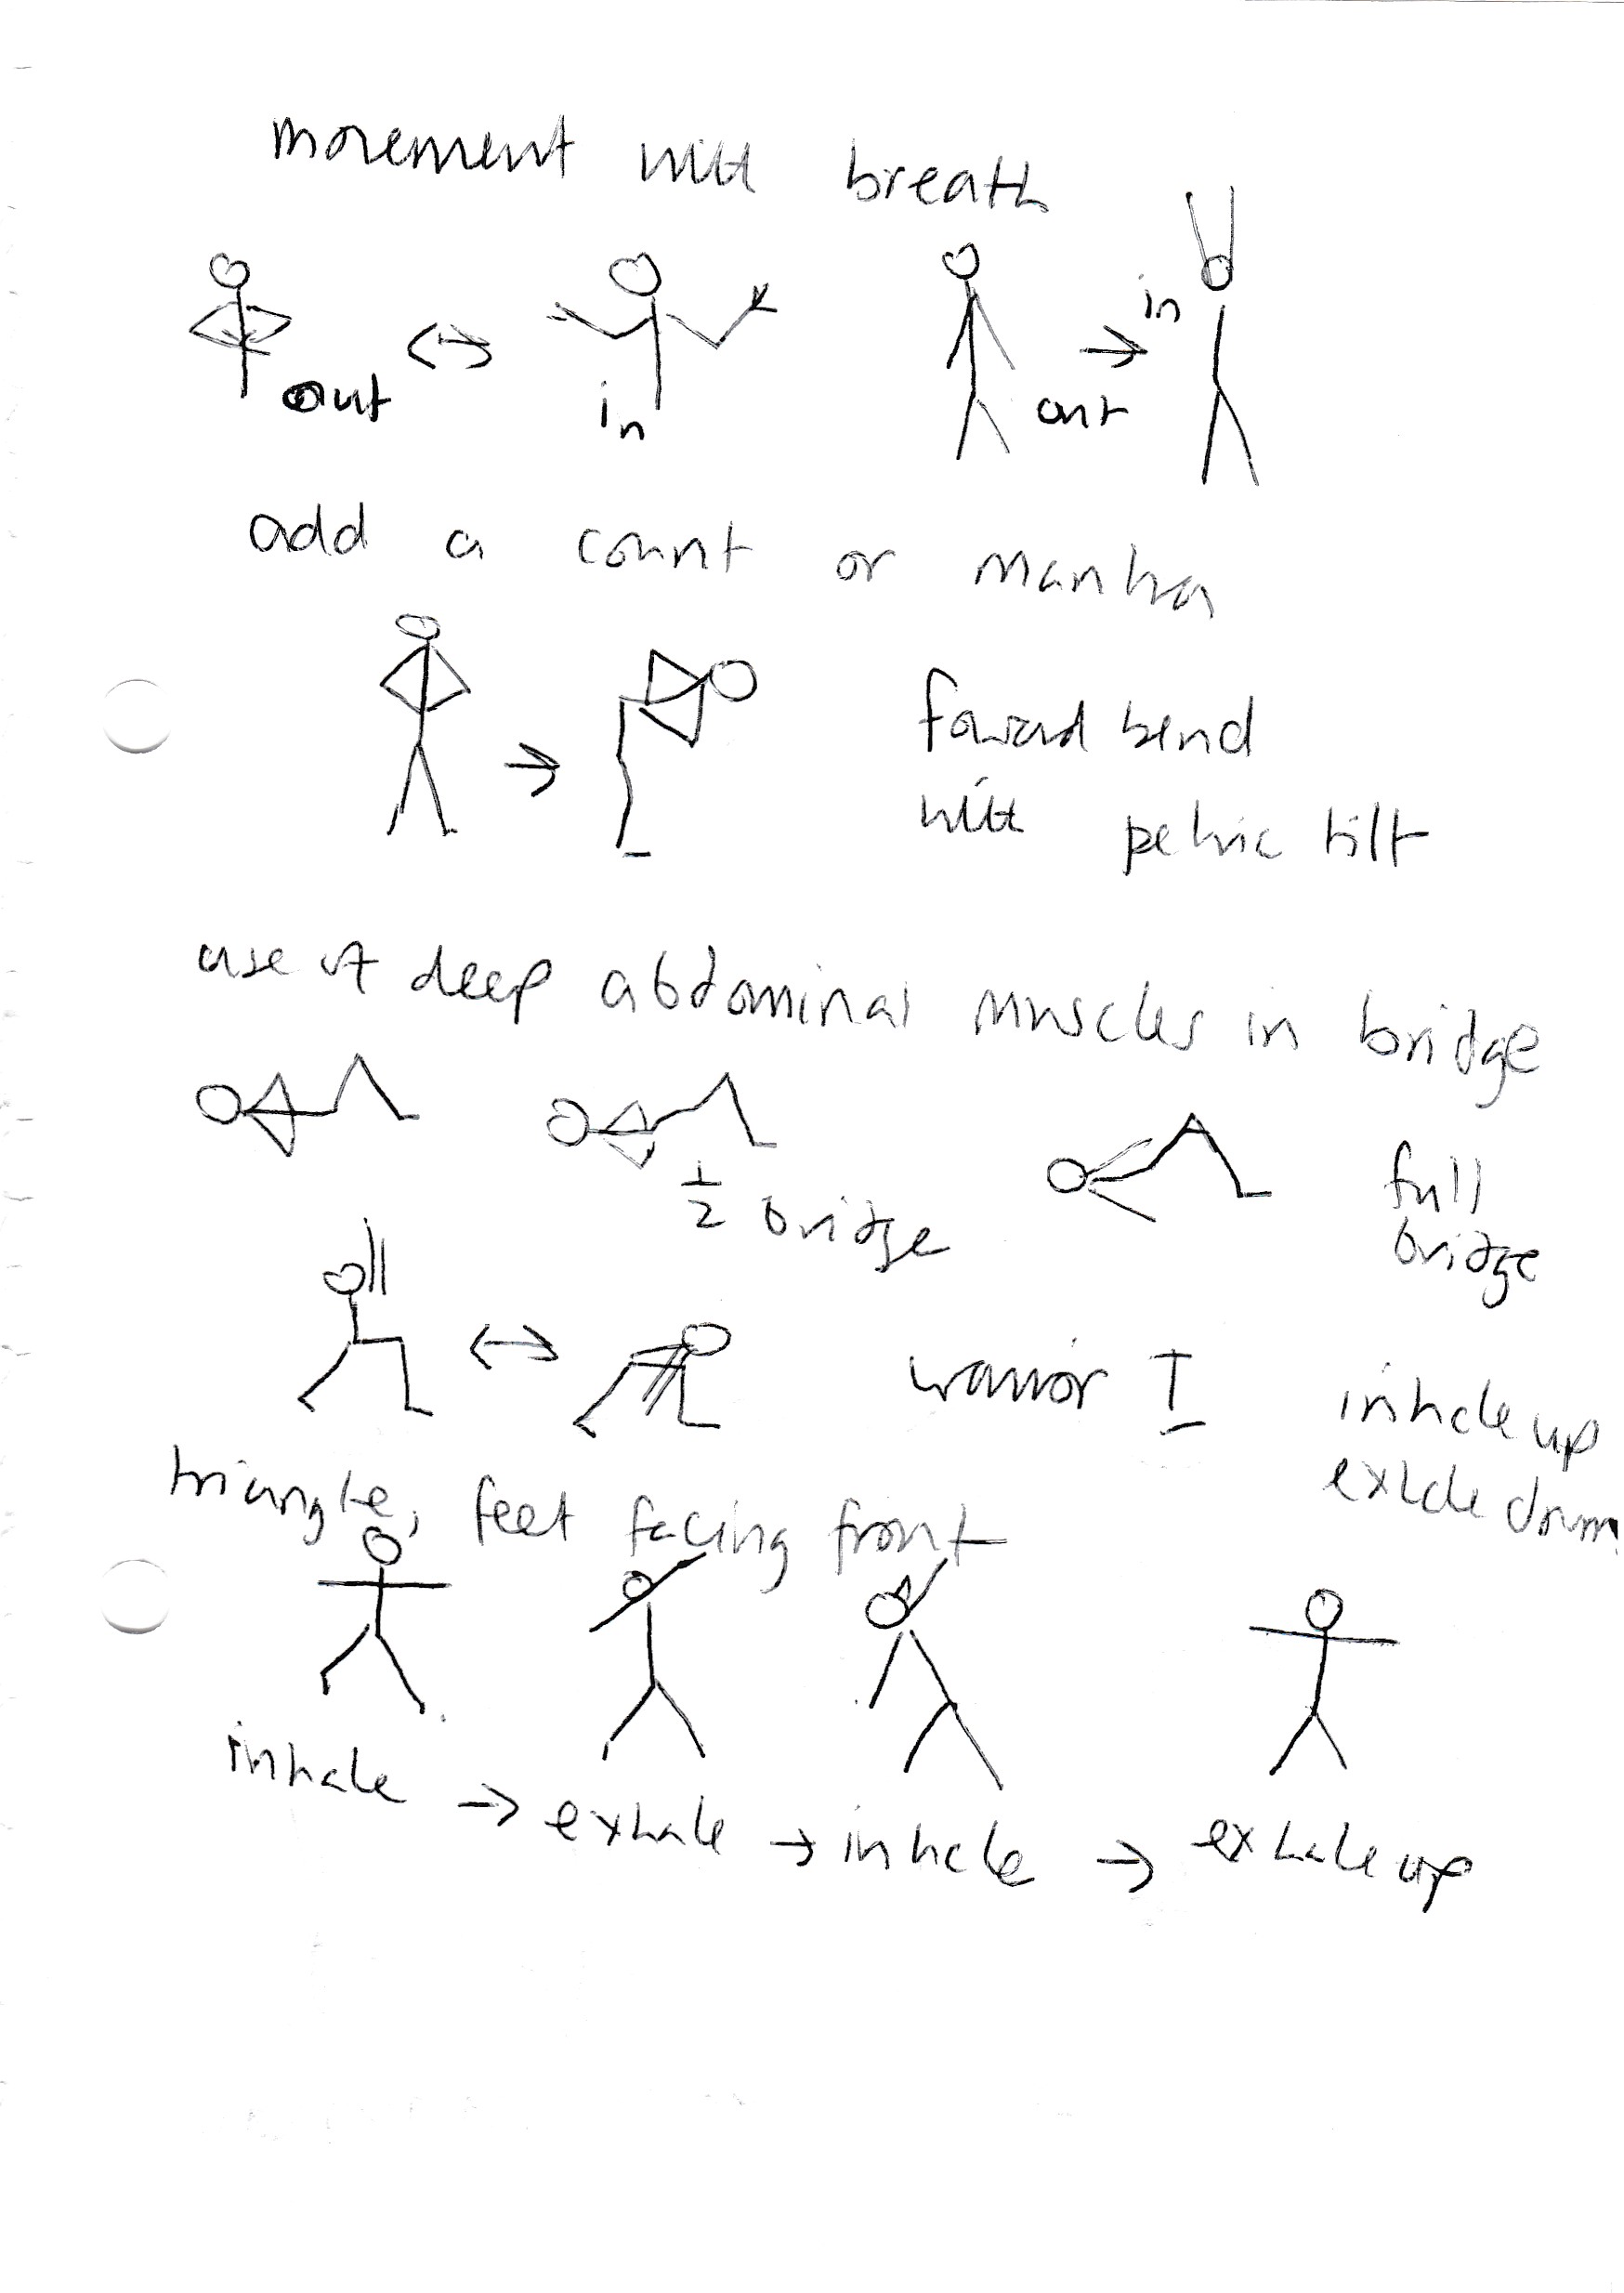 movement with breath
out in out in
add a count or mantra
foward bend
with pelvic tilt
use of deep abdominal muscles in bridge
1/2 bridge
full
bridge
warrior I
inhale up
exhale down
triangle, feet facing front
inhale → exhale → inhale → exhale up